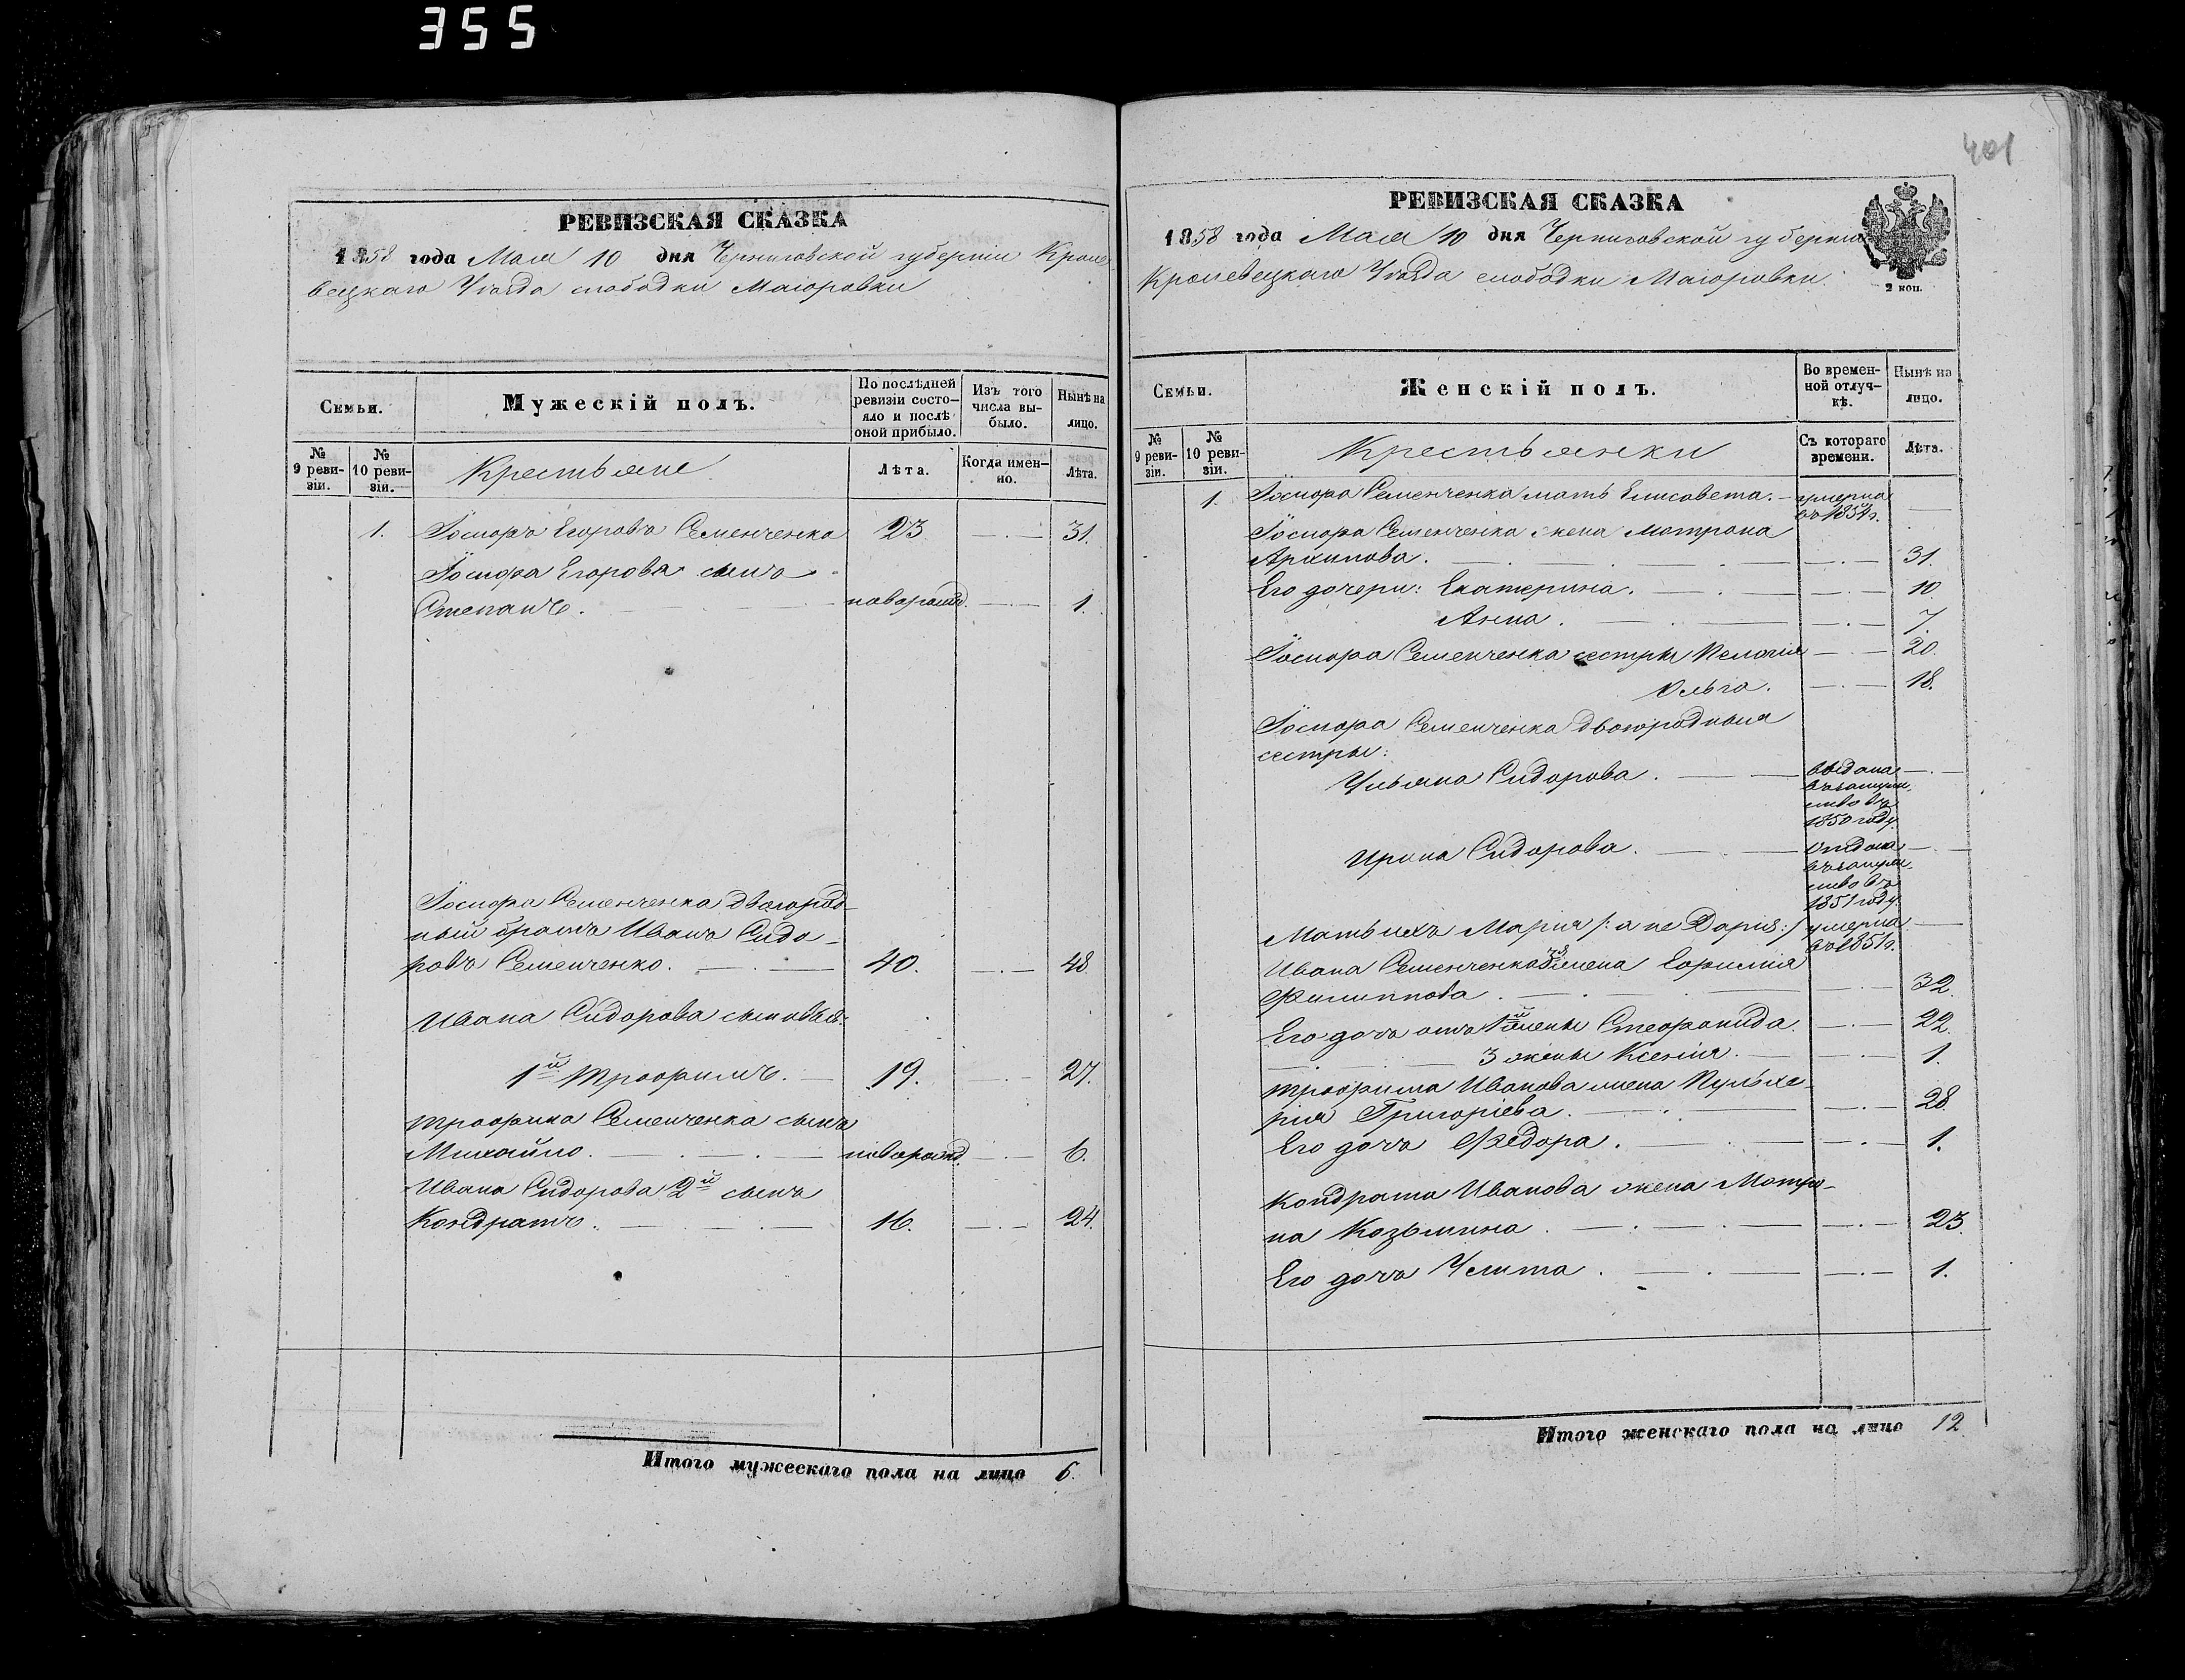 355
401
РЕВИЗСКАЯ СКАЗКА
1858 года Мая 10 дня Черниговской губерніи Кроле
вецкаго Уѣзда слободки Маіоровки
Семьи.
Мужескій полъ.
По послѣдней ревизіи состо-
яло и послѣ
оной прибыло.
Изъ того
числа вы-
было.
Нынѣ на
лицо.
№
9 реви-
зіи.
№
10 реви-
зіи.
Крестьяне
Лѣта.
Когда имен-
но.
Лѣта.
1. Іосифъ Егоровъ Семенченко 23 — . — 31.
Іосифа Егорова сынъ
Степанъ. новорожд. — . — 1.
Іосифа Семенченка двоюрод-
ный братъ Иванъ Сидо-
ровъ Семенченко. — . — 40. — . — 48.
Ивана Сидорова сыновья:
1й Трофимъ. — 19. — . — 27.
Трофима Семенченка сынъ
Михайло. — . — . — новорожд. — . — 6.
Ивана Сидорова 2й сынъ
Кондратъ. — . — . — 16. — . — 24.
Итого мужескаго пола на лицо 6.
РЕВИЗСКАЯ СКАЗКА
1858 года Мая 10 дня Черниговской губерніи
Кролевецкаго Уѣзда слободки Маіоровки.
2 коп.
Семьи.
Женскій полъ.
Во времен-
ной отлуч-
кѣ.
Нынѣ на
лицо.
№
9 реви-
зіи.
№
10 реви-
зіи.
Крестьянки
Съ котораго
времени.
Лѣта.
1. Іосифа Семенченка мать Елисавета. — умерла
въ 1854 г. —
Іосифа Семенченка жена Мотрона
Архипова. — . — . — . — 31.
Его дочери: Екатерина. — . — 10.
Анна. — . — 7.
Іосифа Семенченка сестры Пелагія — — 20.
Ольга. — . — 18.
Іосифа Семенченка двоюродныя
сестры:
Ульяна Сидорова. — — выдана — . —
въ замуж-
ство въ
1850 году.
Ирина Сидорова. — — отдана — . —
въ замуж-
ство въ
1851 году.
Мать ихъ Марія /: а не Дарія :/ умерла —
въ 1851 г.
Ивана Семенченка 3я жена Евфимія
Филиппова. — . — — . — 32.
Его дочь отъ 1й жены Стефанида. — . — 22.
— . — 3 жены Ксенія. — — . — 1.
Трофима Иванова жена Пульхе-
рія Григоріева. — . — — . — 28.
Его дочь Федора. — . — — . — 1.
Кондрата Иванова жена Мотро-
на Козьмина. — . — . — — . — 23.
Его дочь Улита. — . — — . — 1.
Итого женскаго пола на лицо 12.